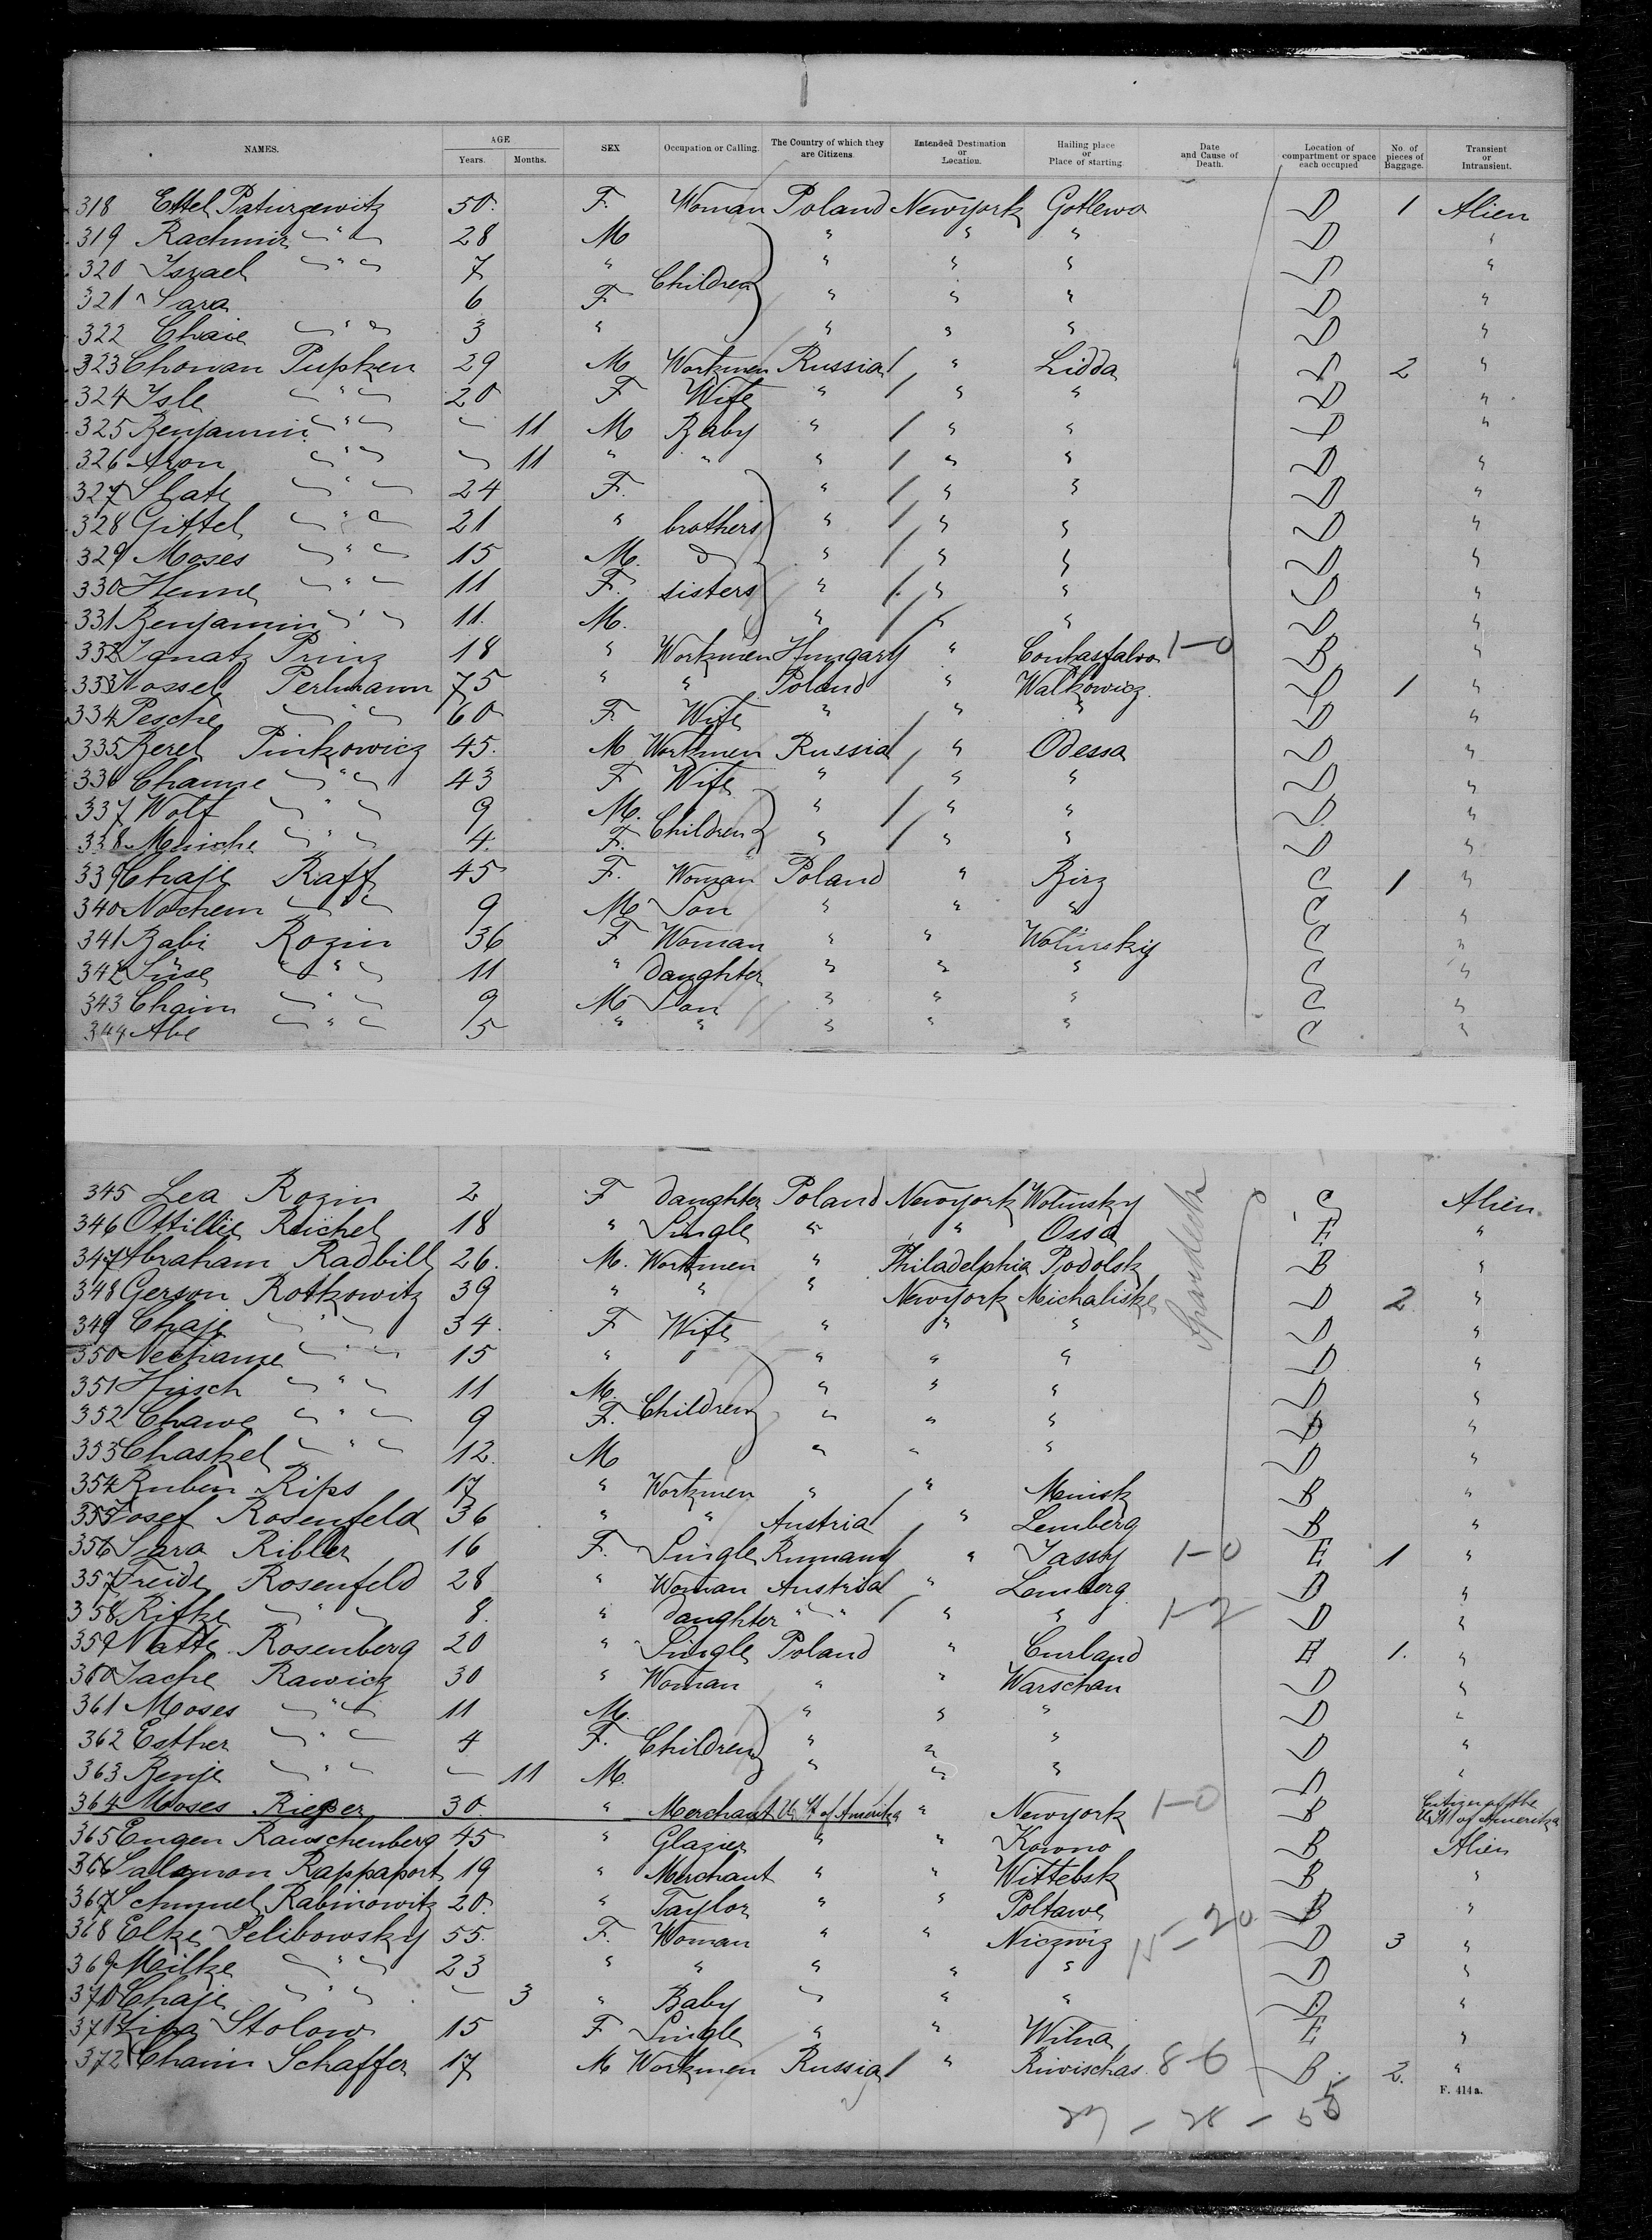 NAMES. AGE Years. Months. SEX Occupation or Calling. The Country of which they are Citizens. Intended Destination or Location. Hailing place or Place of starting. Date and Cause of Death. Location of compartment or space each occupied No. of pieces of Baggage. Transient or Intransient.
318 Ettel Paturzewitz 50. F. Woman Poland Newyork Gotlewo D 1 Alien
319 Rachmir " 28 M " " " D "
320 Israel " 7 " Children " " " D "
321 Sara 6 F " " " D "
322 Chaie " 3 " " " " D "
323 Chonan Pupken 29 M Workmen Russia / " Lidda D 2 "
324 Isle " 20 F Wife " / " " D "
325 Benjamin " - 11 M Baby " / " " D "
326 Aron " - 11 " " " / " " D "
327 Slate " 24 F. " / " " D "
328 Gittel " 21 " brothers " / " " D "
329 Moses " 15 M. & " / " " D "
330 Henne " 11 F. sisters " / " " D "
331 Benjamin " 11. M. " / " " D "
332 Ignatz Prinz 18 " Workmen Hungary " 1-0 B "
333 Nossel Perlmann 75 " " Poland " Walkowicz. D 1 "
334 Pesche " 60 F. Wife " " " D "
335 Berel Pinkowicz 45. M Workmen Russia / " Odessa D "
336 Channe " 43 F Wife " / " " D "
337 Wolf " 9 M. Children " / " " D "
338 Meniche " 4. F. " / " " D "
339 Chaje Raff 45 F. Woman Poland " Birz C 1 "
340 Nochem " 9 M Son " " " C "
341 Babi Rozin 36 F Woman " " Wolinskig C "
342 Süse " 11 " Daughter " " " C "
343 Chaim " 9 M Son " " " C "
344 Abe " 5 " " " " " C "
345 Lea Rozin 2 F Daughter Poland Newyork Wolinsky C Alien
346 Ottillie Reichel 18 " Single " " Ossa E "
347 Abraham Radbill 26. M. Workmen " Philadelphia Podolsk B "
348 Gerson Rotkowitz 39 " " " Newyork Michaliske D 2 "
349 Chaje " 34. F Wife " " " D "
350 Nechame " 15 " " " " D "
351 Hirsch " 11 M. Children " " " D "
352 Chawe " 9 F. " " " D "
353 Chaskel " 12. M " " " D "
354 Ruben Rips 17 " Workmen " " Minsk B "
355 Josef Rosenfeld 36 " " Austria " Lemberg B "
356 Sara Ribler 16 F. Single Rumany " Jassy 1-0 E 1 "
357 Freide Rosenfeld 28 " Woman Austria " Lemberg. D "
358 Rifke " 8. " Daughter " / " " 1-2 D "
359 Natte Rosenberg 20 " Single Poland " Curland E 1. "
360 Jache Rawicz 30 " Woman " " Warschau D "
361 Moses " 11 M. " " " D "
362 Esther " 4 F. Children " " " D "
363 Benje " - 11 M. " " " D "
364 Moses Rieger 30. " Merchant U. St of Amerika " Newyork 1-0 B Citizen of the U. St of Amerika
365 Eugen Rauschenberg 45 " Glazier " " Kowno B Alien
366 Salamon Rappaport 19 " Merchant " " Wittebsk B "
367 Schmuel Rabinowitz 20. " Taylor " " Poltawe B "
368 Elke Selibowsky 55. F. Woman " " Niczwiz 15-20 D 3 "
369 Milke " 23 " " " " " D "
370 Chaje " - 3 " Baby " " " D "
371 Lina Stolow 15 F Single " " Wilna E "
372 Chaim Schaffer 17 M Workmen Russia / " Riwischas. 8-6 B 2. "
F. 414a.